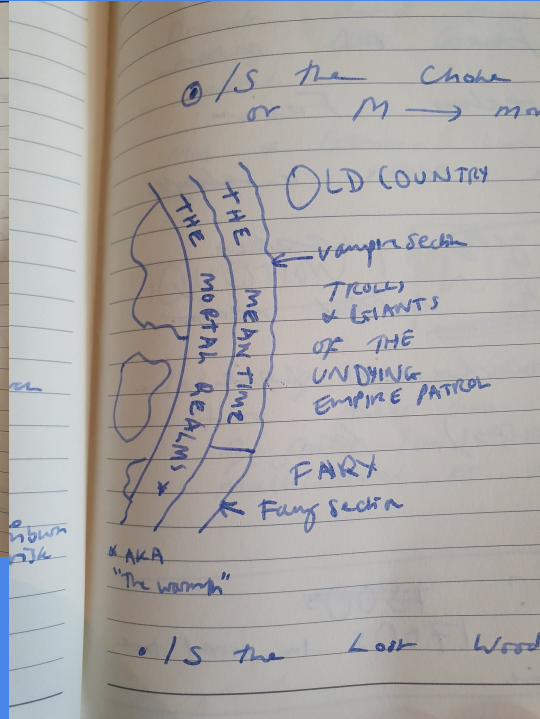 /S the Choke
or M → mor
OLD COUNTRY
THE MORTAL REALMS *
THE MEAN TIME
← vampire section
TROLLS
& GIANTS
OF THE
UNDYING
EMPIRE PATROL
FAIRY
Section
* AKA
"The warmth"
• /S the Lost Wood